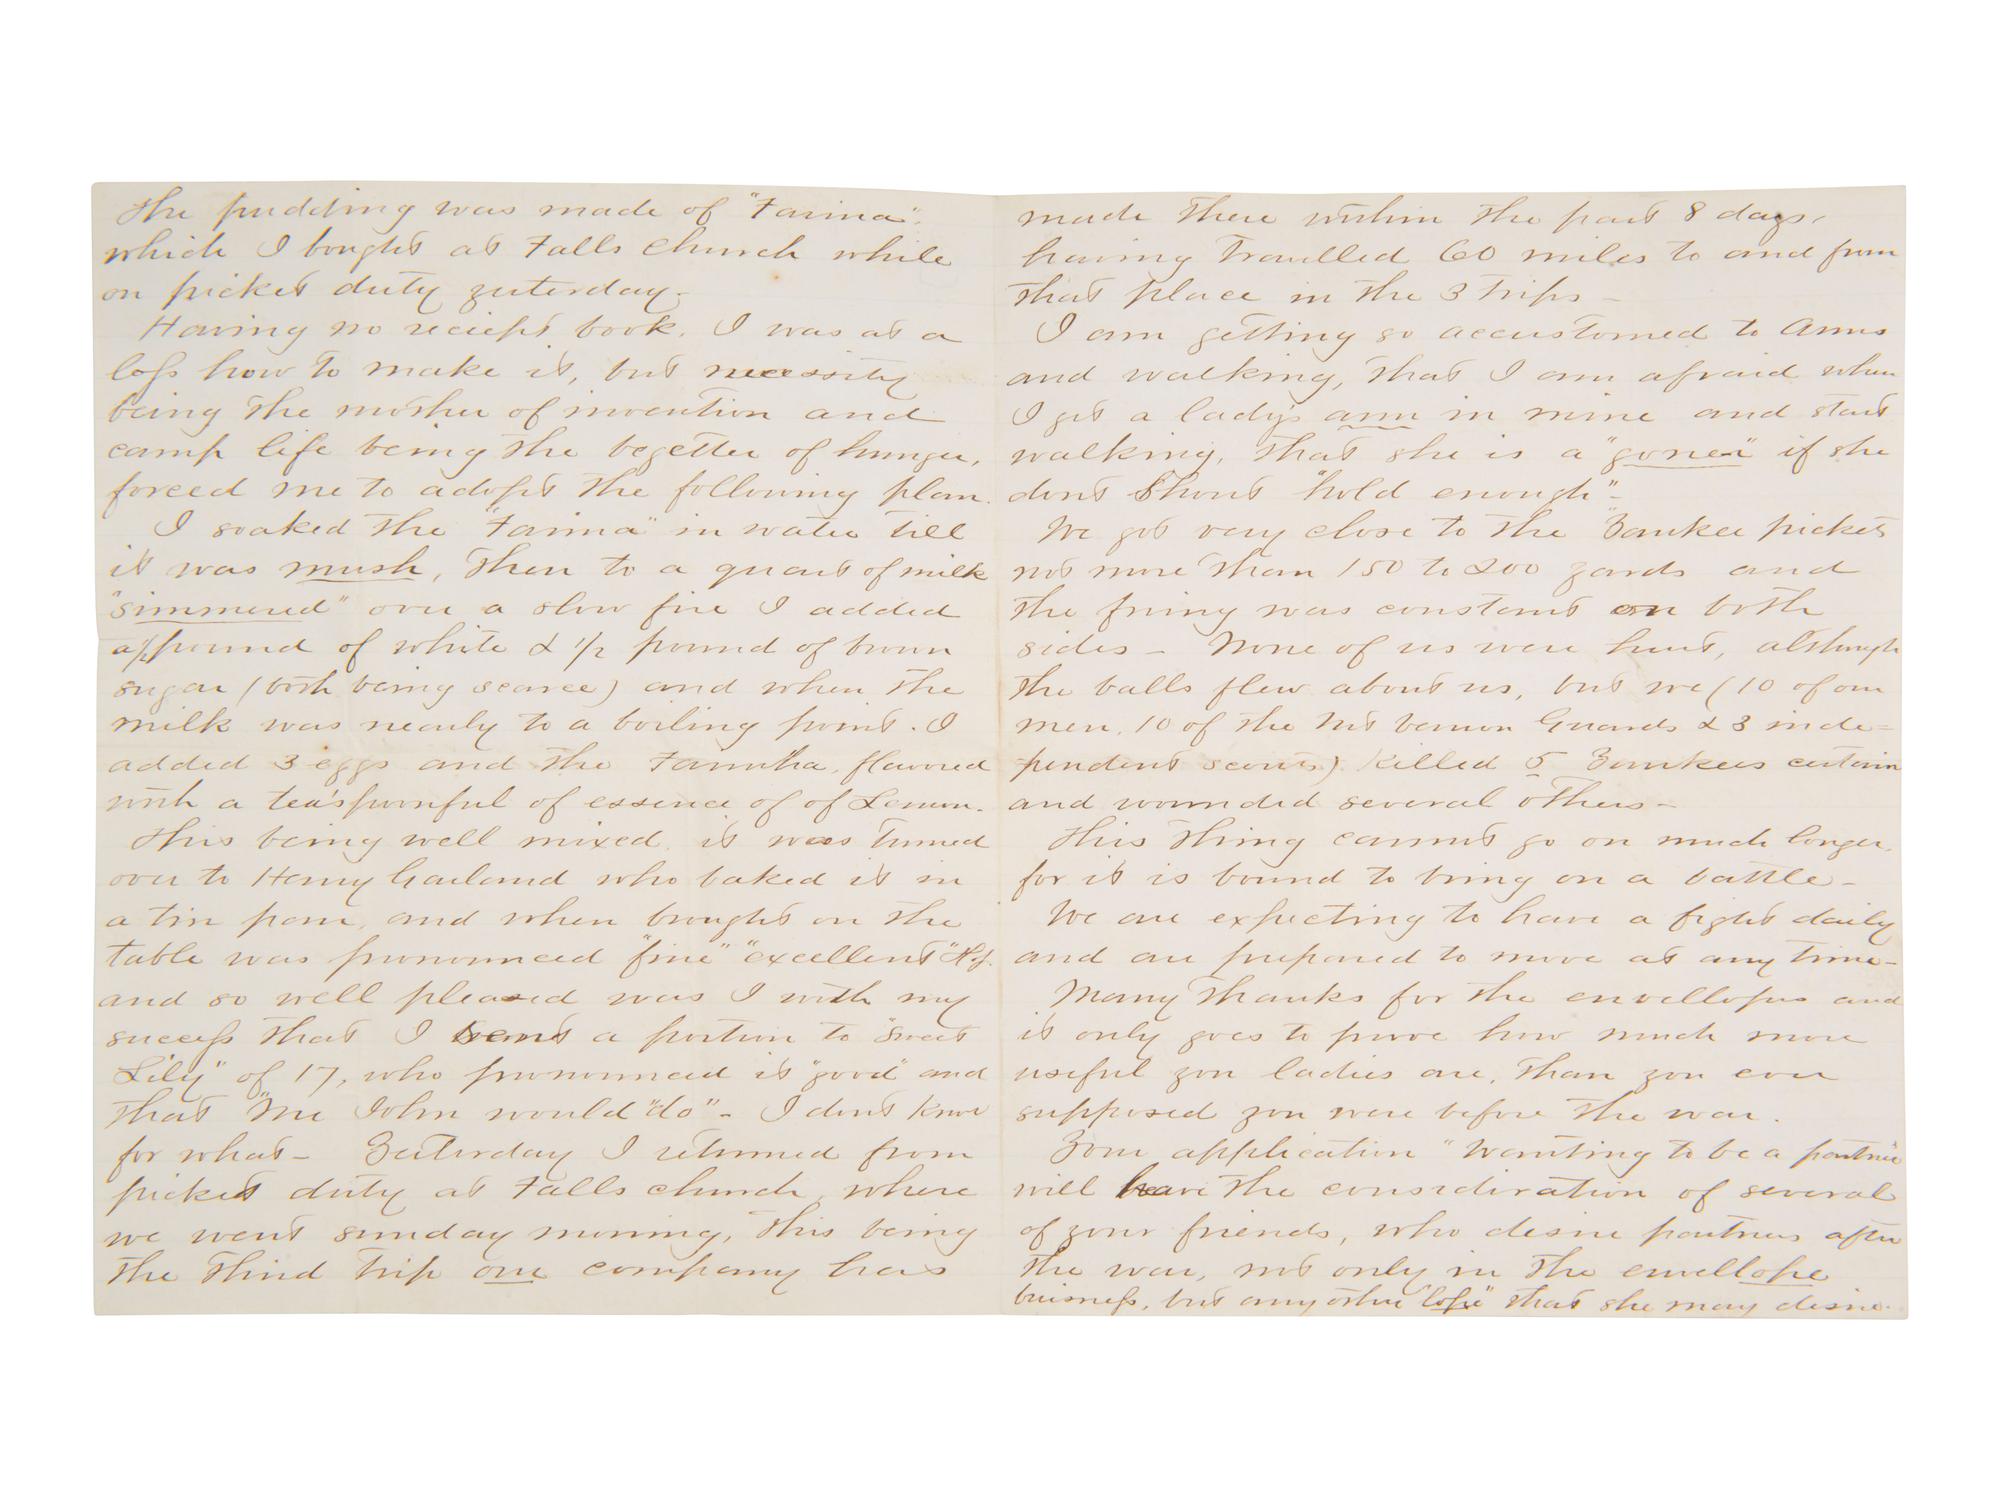 The pudding was made of "Farina",
which I bought at Falls Church while
on picket duty yesterday.
Having no reciept book, I was at a
loss how to make it, but necessity
being the mother of invention and
camp life being the begetter of hunger,
forced me to adopt the following plan.
I soaked the "Farina" in water till
it was mush, then to a quart of milk
"simmered" over a slow fire I added
a 1/2 pound of white & 1/2 pound of brown
sugar (both being scarce) and when the
milk was nearly to a boiling point. I
added 3 eggs and the Farina, flavored
with a teaspoonful of essence of of Lemon.
This being well mixed, it was turned
over to Henry Garland who baked it in
a tin pan, and when brought on the
table was pronounced "fine" "excellent" &c.
and so well pleased was I with my
success that I sent a portion to "Sweet
Lily" of 17, who pronounced it "good" and
that "Mr John would "do" - I dont know
for what - Yesterday I returned from
picket duty at Falls church, where
we went sunday morning, this being
the third trip our company has
made there within the past 8 days,
having travelled 60 miles to and from
that place in the 3 trips -
I am getting so accustomed to Arms
and walking, that I am afraid when
I get a lady's arm in mine and start
walking, that she is a "goner" if she
dont shout "hold enough" -
We got very close to the "Yankee pickets
not more than 150 to 200 yards and
the firing was constant on both
sides - None of us were hurt, although
the balls flew about us, but we (10 of our
men, 10 of the Mt Vernon Guards & 3 inde=
pendent scouts) killed 5 Yankees certain
and wounded several others -
This thing cannot go on much longer,
for it is bound to bring on a battle -
We are expecting to have a fight daily
and are prepared to move at any time -
Many thanks for the envellopes and
it only goes to prove how much more
useful you ladies are, than you ever
supposed you were before the war.
Your application "Wanting to be a partner"
will have the consideration of several
of your friends, who desire partners after
the war, not only in the envellope
buisness, but any other "lope" that she may desire.